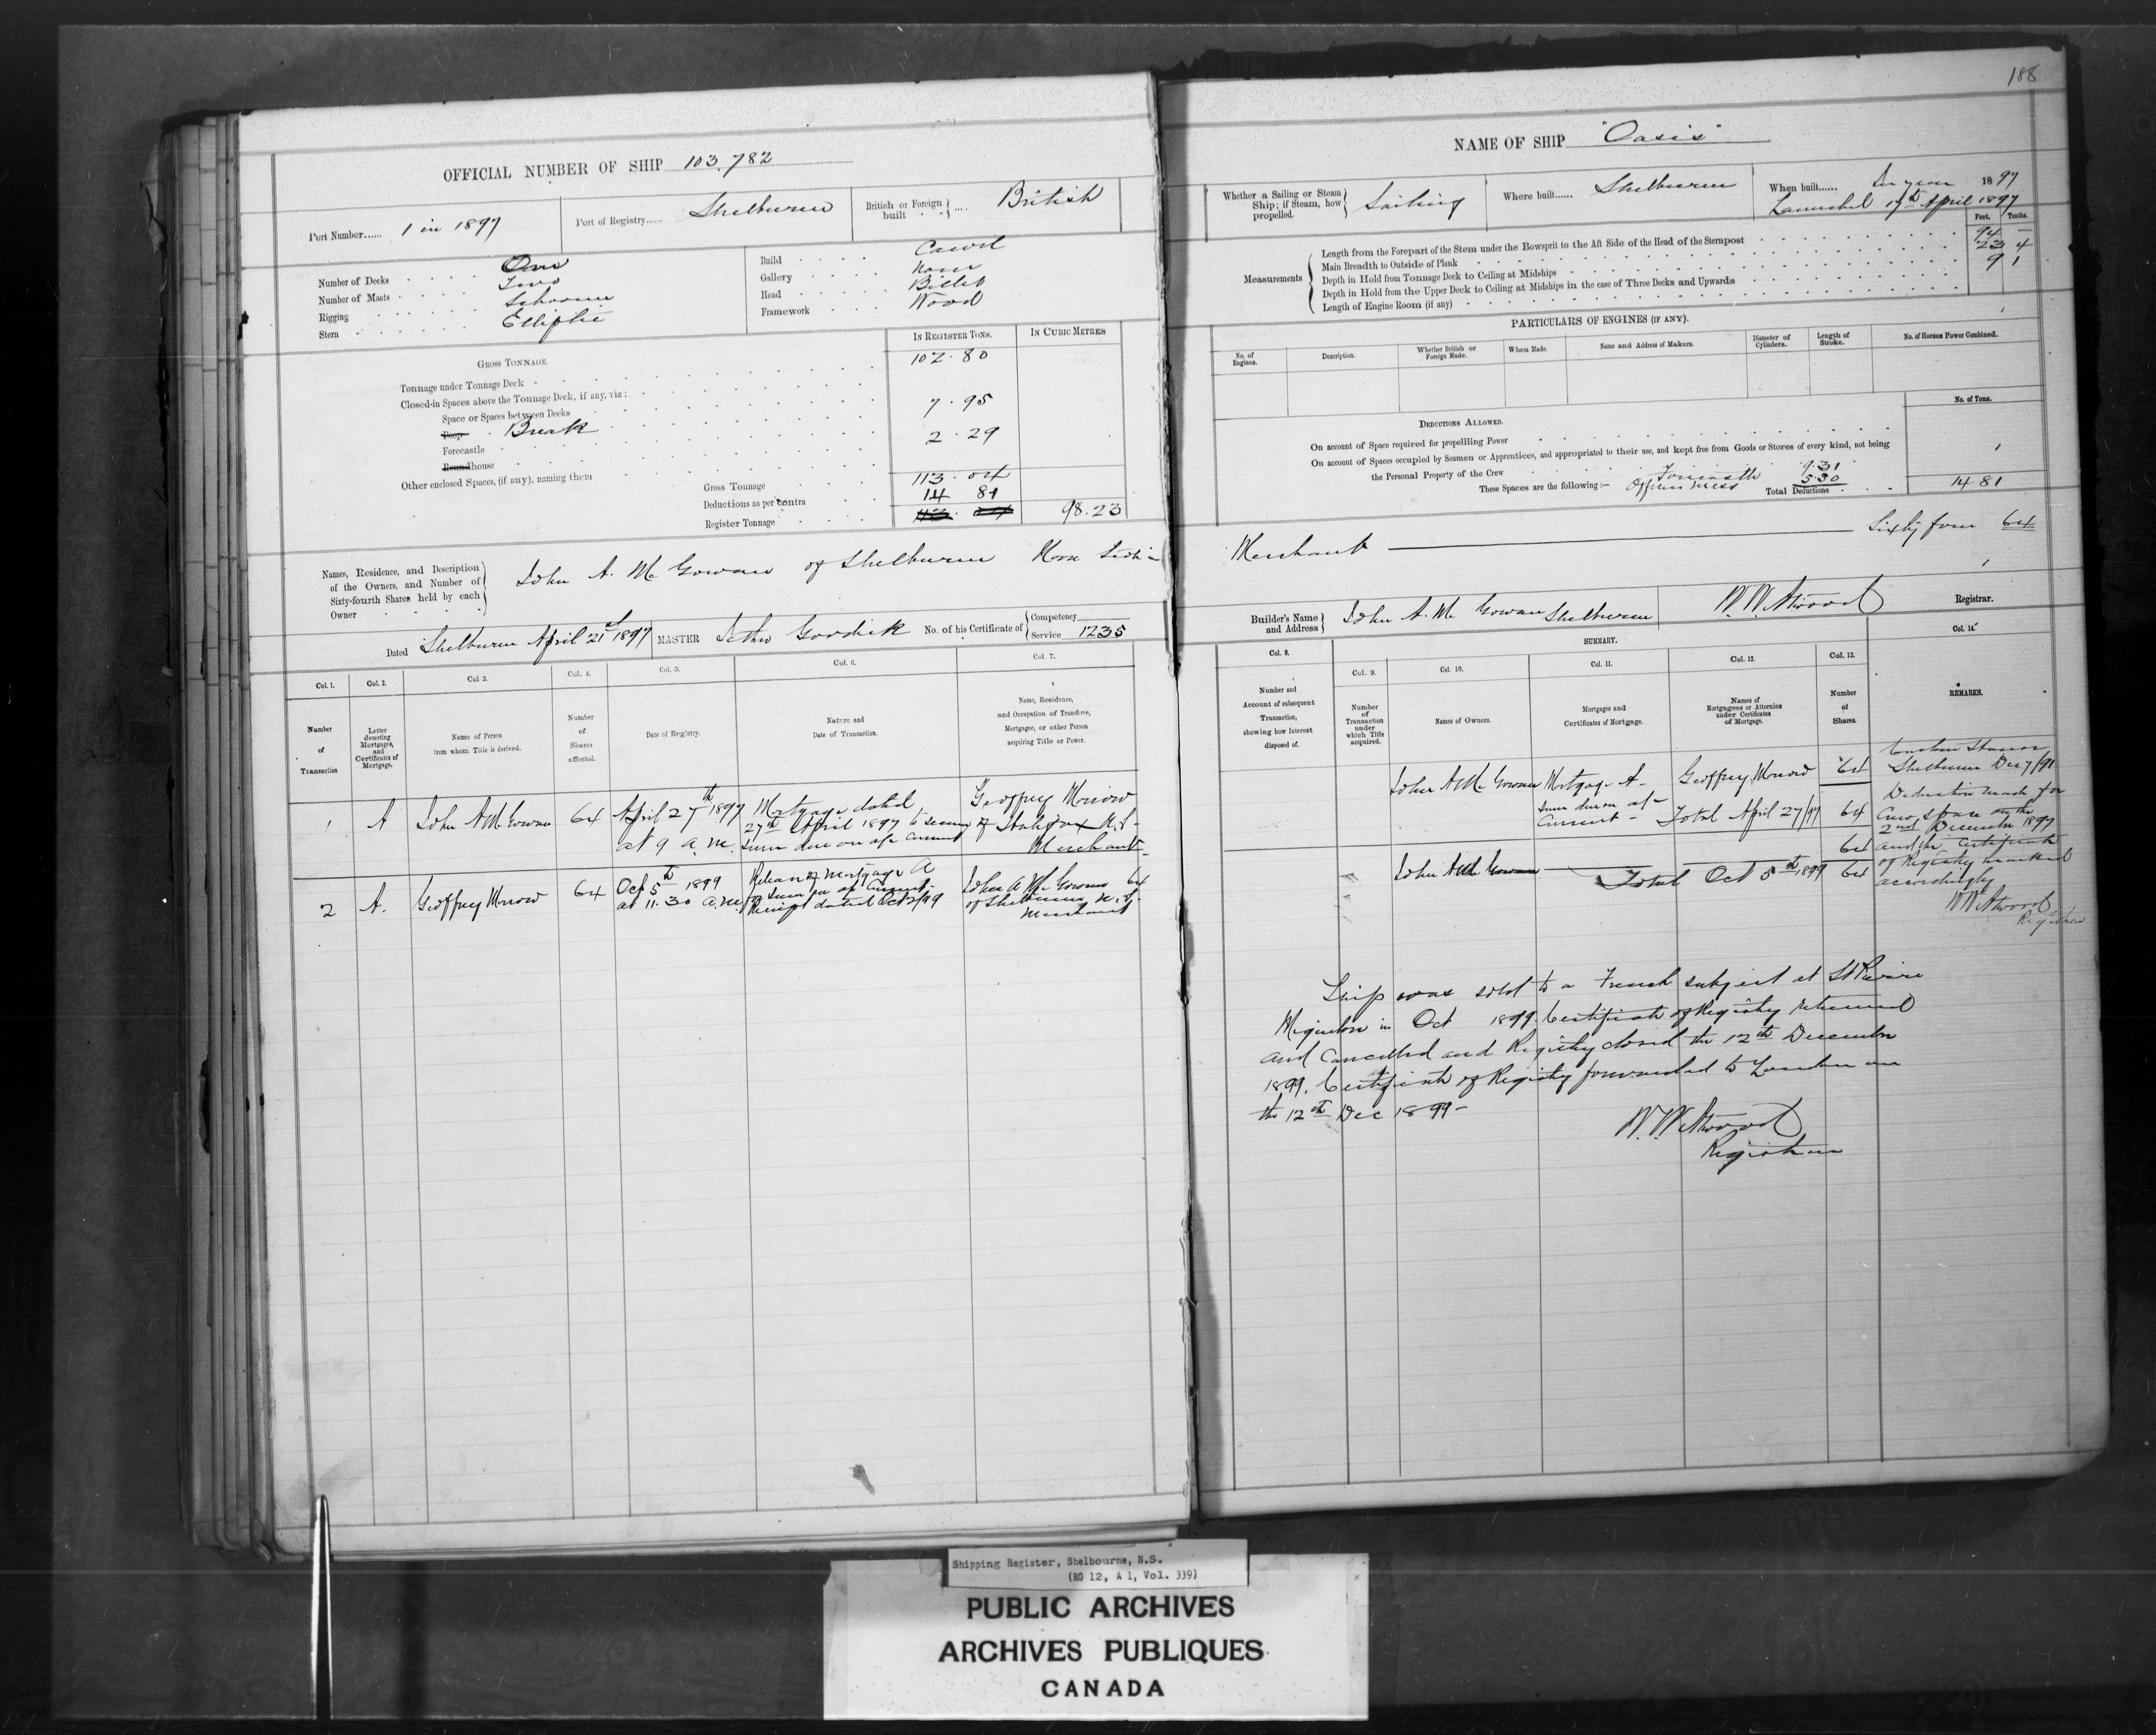 OFFICIAL NUMBER OF SHIP 103,782
Port Number...... 1 in 1897
Port of Registry...... Shelburne
British or Foreign built .... British
Number of Decks One
Number of Masts Two
Rigging Schooner
Stern Elliptic
Build Carvel
Gallery None
Head Billet
Framework Wood
IN REGISTER TONS. IN CUBIC METRES
GROSS TONNAGE.
Tonnage under Tonnage Deck 102.80
Closed-in Spaces above the Tonnage Deck, if any, viz:
Space or Spaces between Decks
Poop Break 7.95
Forecastle
Roundhouse 2.29
Other enclosed Spaces, (if any), naming them
Gross Tonnage 113.04
Deductions as per Contra 14 81
Register Tonnage 98.23
Names, Residence, and Description of the Owners, and Number of Sixty-fourth Shares held by each Owner
John A. McGowan of Shelburne Nova Scotia
Dated Shelburne April 21st 1897 MASTER Goodick No. of his Certificate of Competency Service 1235
Col. 1. Col. 2. Col. 3. Col. 4. Col. 5. Col. 6. Col. 7.
Number of Transaction
Letter denoting Mortgages, and Certificates of Mortgage.
Name of Person from whom Title is derived.
Number of Shares affected.
Date of Registry.
Nature and Date of Transaction.
Name, Residence, and Occupation of Transferee, Mortgagee, or other Person acquiring Title or Power.
1 A John A McGowan 64 April 27th 1897 at 9 a.m. Mortgage dated 27th April 1897 to secure sum due on a/c current Geoffrey Morrow of Halifax N.S. Merchant
2 A. Geoffrey Morrow 64 Oct 5th 1899 at 11.30 a.m. Release of Mortgage A Receipt dated Oct 2/99 John A McGowan 64 of Shelburne N.S. Merchant
188
NAME OF SHIP "Oasis"
Whether a Sailing or Steam Ship; if Steam, how propelled. Sailing
Where built...... Shelburne
When built...... In year 1897
Launched 17th April 1897
Feet. Tenths.
Measurements
Length from the Forepart of the Stem under the Bowsprit to the Aft Side of the Head of the Sternpost 94 –
Main Breadth to Outside of Plank 23 4
Depth in Hold from Tonnage Deck to Ceiling at Midships 9 1
Depth in Hold from the Upper Deck to Ceiling at Midships in the case of Three Decks and Upwards
Length of Engine Room (if any)
PARTICULARS OF ENGINES (IF ANY).
No. of Engines. Description. Whether British or Foreign Made. When Made. Name and Address of Makers. Diameter of Cylinders. Length of Stroke. No. of Horses Power Combined.
No. of Tons.
DEDUCTIONS ALLOWED.
On account of Space required for propelling Power
On account of Spaces occupied by Seamen or Apprentices, and appropriated to their use, and kept free from Goods or Stores of every kind, not being
the Personal Property of the Crew
These Spaces are the following:— Forecastle 9.31
Officers Mess 5.30
Total Deductions 14.81
Merchant Sixty four 64
Builder's Name and Address John A. McGowan Shelburne
W. W. Atwood Registrar.
SUMMARY.
Col. 8. Col. 9. Col. 10. Col. 11. Col. 12. Col. 13. Col. 14.
Number and Account of subsequent Transaction, showing how Interest disposed of.
Number of Transaction under which Title acquired.
Names of Owners.
Mortgages and Certificates of Mortgage.
Names of Mortgagees or Attornies under Certificates of Mortgage.
Number of Shares.
REMARKS.
John A McGowan Mortgage A sum due on a/c Current Geoffrey Morrow 64
Total April 27/97 64
64
John A McGowan Total Oct 5th 1899 64
Custom House
Shelburne Dec 7/97
Deduction made for
Crew space on the
2nd December 1897
and the Certificate
of Registry marked
accordingly
W W Atwood
Registrar
Ship was sold to a French subject at St Pierre
Miquelon in Oct 1899. Certificate of Registry returned
and Cancelled and Registry closed the 12th December
1899. Certificate of Registry forwarded to London on
the 12th Dec 1899–
W. W. Atwood
Registrar
Shipping Register, Shelbourne, N.S.
(RG 12, A 1, Vol. 339)
PUBLIC ARCHIVES
ARCHIVES PUBLIQUES
CANADA